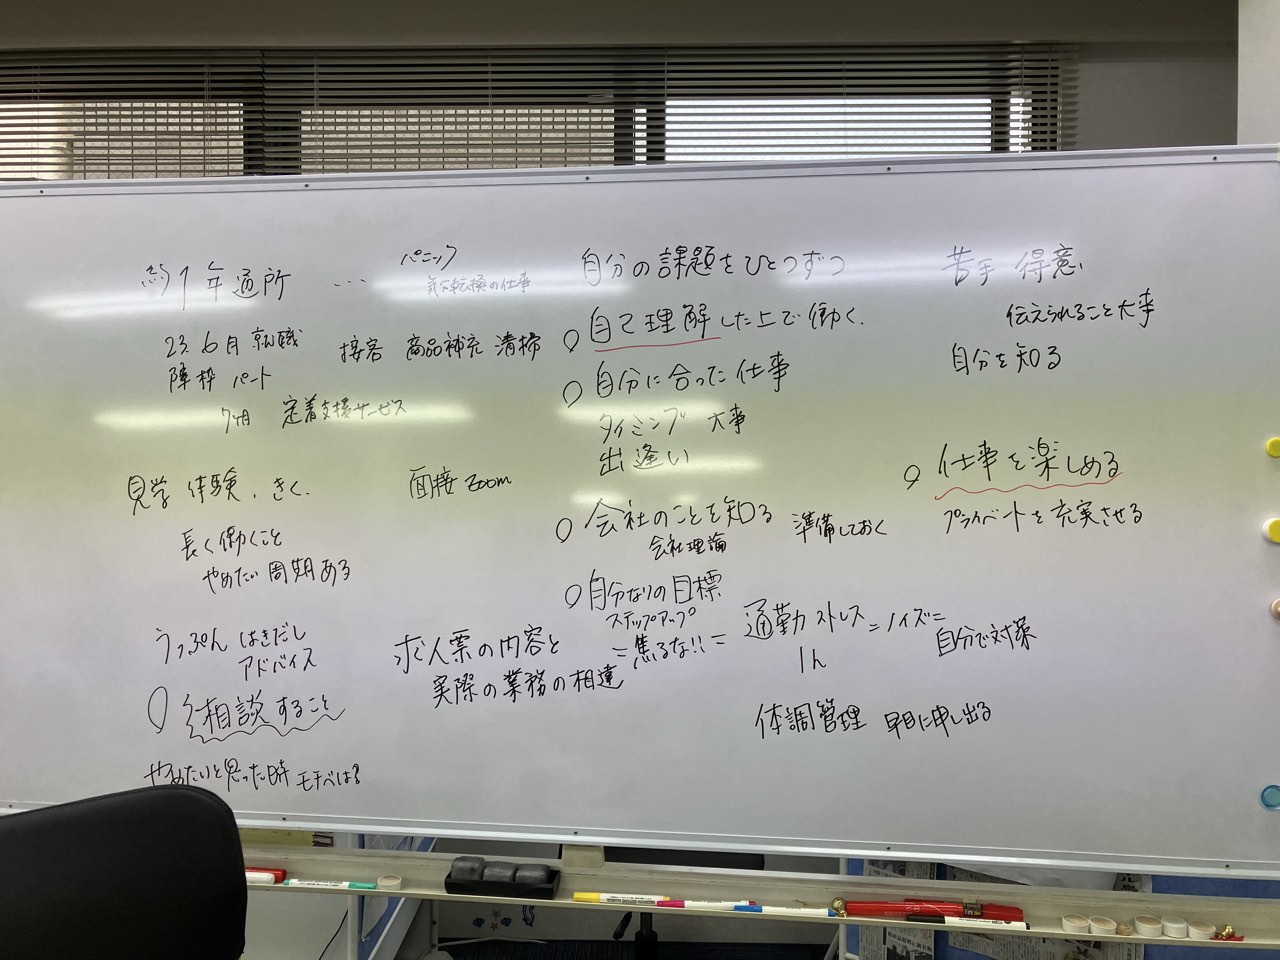 約1年通所 ・・・ パニック
気分転換の仕事
23.6月 就職 接客 商品補充 清掃
障枠 パート
7ヶ月 定着支援サービス
見学 体験、きく. 面接 Zoom
長く働くこと
やめたい周期ある
うっぷん はきだし
アドバイス
相談すること
やめたいと思った時 モチベは?
求人票の内容と
実際の業務の相違
自分の課題をひとつずつ
自己理解した上で働く.
自分に合った仕事
タイミング 大事
出逢い
会社のことを知る 準備しておく
会社理論
自分なりの目標
ステップアップ
=焦るな!!=
通勤 ストレス =ノイズ=
1h 自分で対策
体調管理 早目に申し出る
苦手 得意
伝えられること大事
自分を知る
仕事を楽しめる
プライベートを充実させる